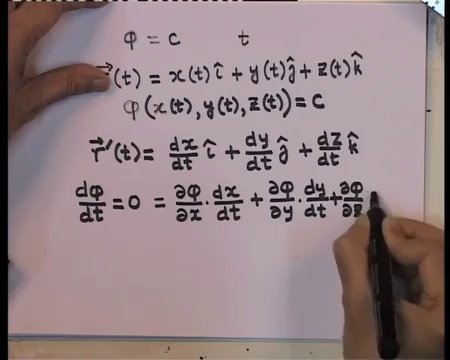 φ = c t
r⃗(t) = x(t) î + y(t) ĵ + z(t) k̂
φ(x(t), y(t), z(t)) = c
r⃗'(t) = dx/dt î + dy/dt ĵ + dz/dt k̂
dφ/dt = 0 = ∂φ/∂x · dx/dt + ∂φ/∂y · dy/dt + ∂φ/∂z